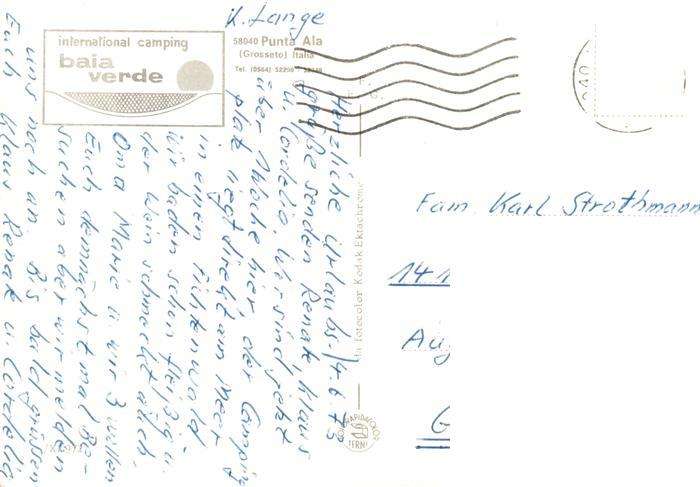 K. Lange
international camping
baia
verde
58040 Punta Ala
(Grosseto) Italia
Tel. (0564)
14.6.73
Herzliche Urlaubs-
grüße senden Renate, Klaus
u. Cordelia. Wir sind jetzt
über 1 Woche hier. der Camping
platz liegt direkt am Meer
in einem Fichtenwald
wir baden schon fleißig u.
der Wein schmeckt auch.
Oma Marie u. wir 3 wollen
Euch demnächst mal Be-
suchen aber wir melden
uns noch an. Bis bald grüssen
Euch Klaus Renate u. Cordelia
fotocolor Kodak Ektachrome
Fam. Karl Strothmann
14.1
Aug
G